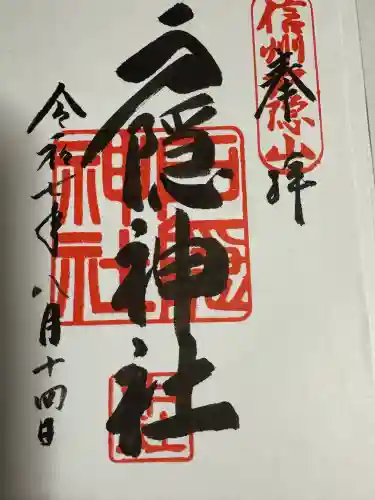 奉拝
信州戸隠山
戸隠神社
戸隠神社
令和七年八月十四日